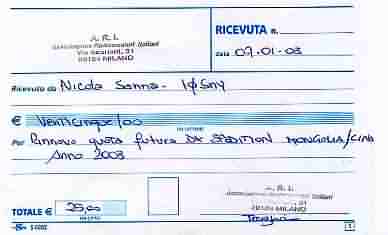 A.R.I.
Associazione Radioamatori Italiani
Via Scarlatti, 31
20124 MILANO
RICEVUTA n.
data 07-01-03
Ricevuto da Nicola Sanna - IØSNY
€ Venticinque/00
IN LETTERE
Per Rinnovo quota futura DX PEDITION MONGOLIA/CINA
Anno 2003
TOTALE € 25,00
A.R.I.
Associazione Radioamatori Italiani
Via Scarlatti, 31
20124 MILANO